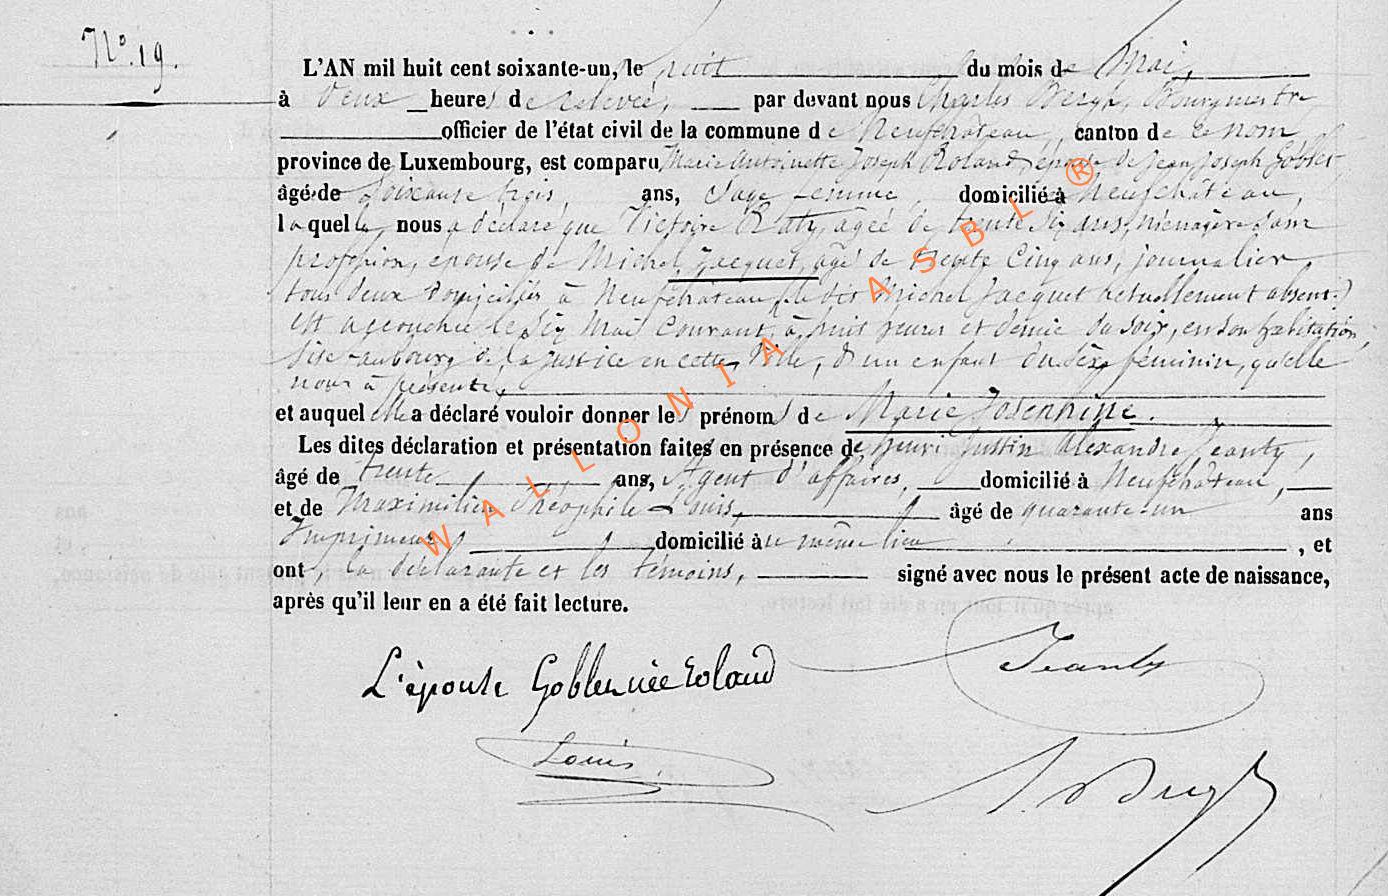 N° 19.
L'AN mil huit cent soixante-un, le huit du mois de Mai,
à deux heures de relevée, par devant nous Charles Bergh, Bourgmestre
officier de l'état civil de la commune de Neufchâteau, canton de ce nom,
province de Luxembourg, est comparu Marie Antoinette Joseph Roland, épouse de Jean Joseph Goblet
âgé de soixante trois, ans, Sage-femme, domicilié à Neufchâteau,
laquelle nous a déclaré que Victoire Raty, agée de trente six ans, ménagère dans
profession, épouse de Michel Jacquet, agé de trente Cinq ans, journalier,
tous deux domiciliés à Neufchâteau, (le dit Michel Jacquet actuellement absent.)
est accouchée le Six Mai Courant, à huit heures et demie du soir, en son habitation,
sise faubourg de la justice en cette Ville, d'un enfant du Sexe féminin, qu'elle
nous a présenté,
et auquel elle a déclaré vouloir donner les prénoms de Marie Josephine.
Les dites déclaration et présentation faites en présence de Henri Justin Alexandre Jeanty,
âgé de trente ans, Agent d'affaires, domicilié à Neufchâteau,
et de Maximilien Théophile Louis, âgé de quarante-un ans
Imprimeur domicilié à u même lieu , et
ont, la déclarante et les témoins, signé avec nous le présent acte de naissance,
après qu'il leur en a été fait lecture.
L'épouse Goblet née Roland
Jeanty
Louis
WALLONIA ASBL ®